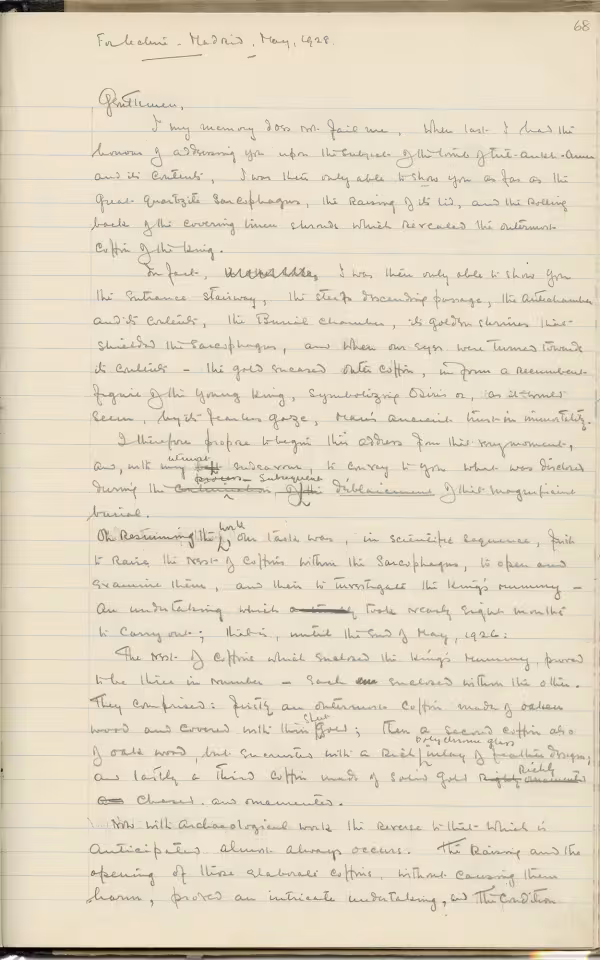 68
For lecture - Madrid, May, 1928.
Gentlemen,
If my memory does not fail me, when last I had the
honour of addressing you upon the subject of the tomb of Tut-Ankh-Amen
and its contents, I was then only able to show you as far as the
great quartzite Sarcophagus, the raising of its lid, and the rolling
back of the covering linen shrouds which revealed the outermost
Coffin of the King.
In fact, I was then only able to show you
the entrance stairway, the steep descending passage, the Antechamber
and its contents, the Burial Chamber, its golden shrines that
shielded the Sarcophagus, and when our eyes were turned towards
its contents – the gold encased outer coffin, in form a recumbent
figure of the young King, symbolizing Osiris or, as it would
seem, by its fearless gaze, man's ancient trust in immortality.
I therefore propose to begin this address from that very moment,
and, with my utmost endeavour, to convey to you what was disclosed
during the process subsequent déblaiement of that magnificent
burial.
On resuming the work our task was, in scientific sequence, first
to raise the nest of coffins within the Sarcophagus, to open and
examine them, and then to investigate the King's mummy –
an undertaking which took nearly eight months
to carry out; that is, until the end of May, 1926:
The nest of coffins which enclosed the King's mummy, proved
to be three in number – each enclosed within the other.
They comprised: firstly an outermost coffin made of oaken
wood and covered with thin sheet gold; then a second coffin also
of oak wood, but encrusted with a rich polychrome glass inlay of feather design;
and lastly a third coffin made of solid gold Richly
chased and ornamented.
Now with archaeological work the reverse to that which is
anticipated almost always occurs. The raising and the
opening of those elaborate coffins, without causing them
harm, proved an intricate undertaking, and the condition